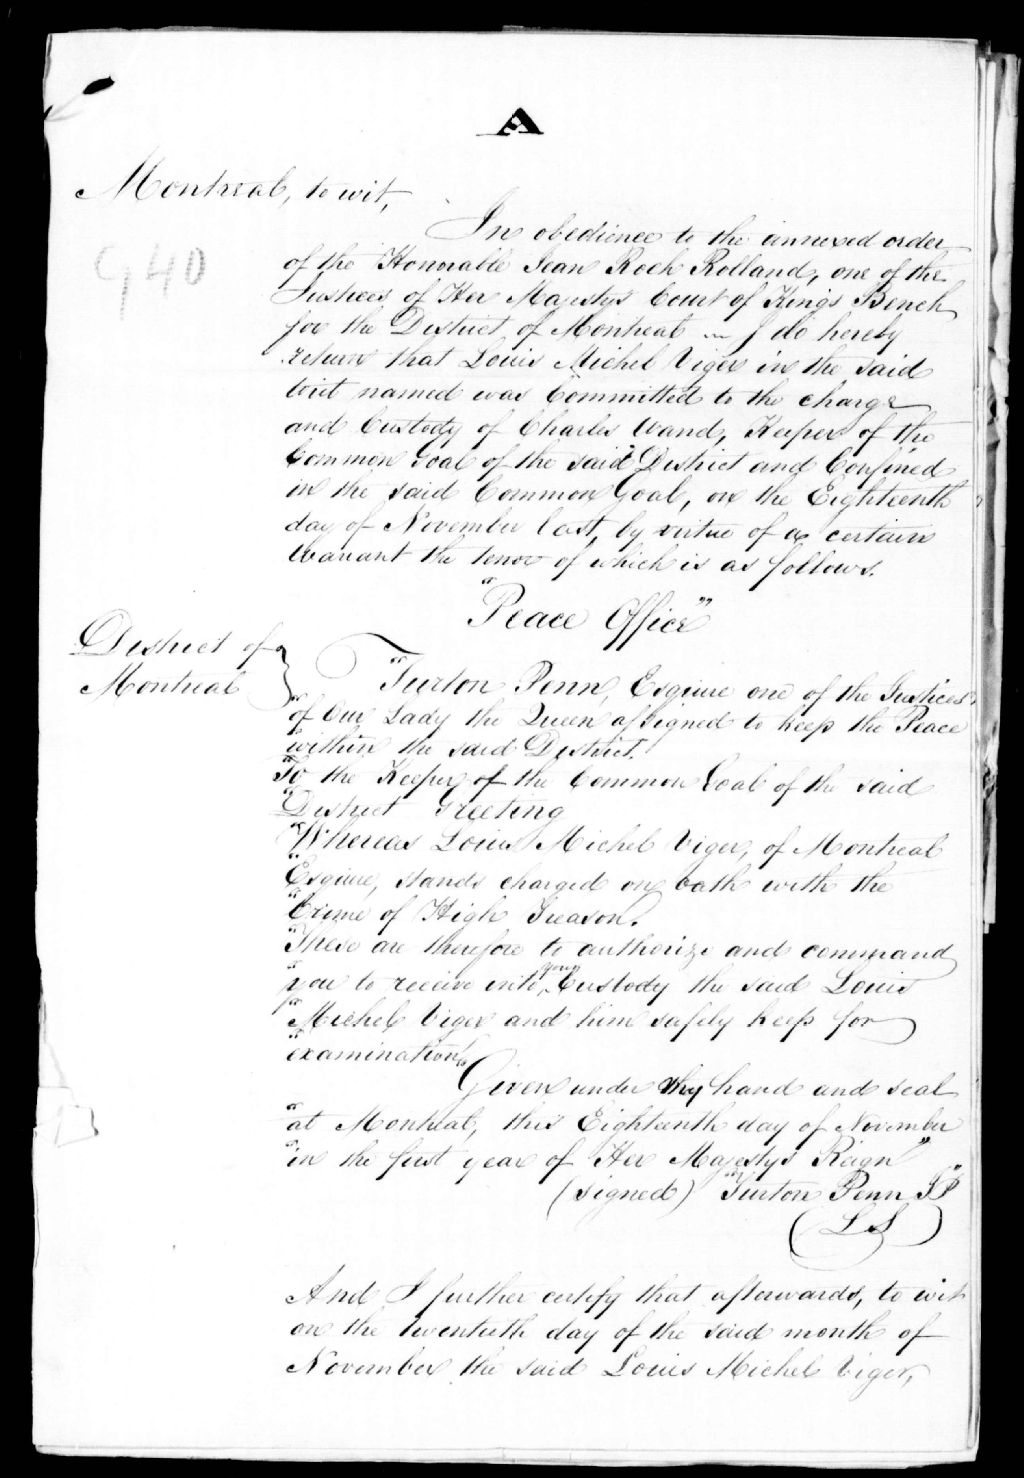 A
Montreal, to wit,
In obedience to the annexed order
of the Honorable Jean Roch Rolland, one of the
Justices of Her Majesty's Court of Kings Bench
for the District of Montreal I do hereby
return that Louis Michel Viger in the said
Writ named was Committed to the charge
and Custody of Charles Wand, Keeper of the
Common Goal of the said District and Confined
in the said Common Goal, on the Eighteenth
day of November last, by virtue of a certain
Warrant the tenor of which is as follows.
"Peace Office"
District of
Montreal
"Turton Penn, Esquire one of the Justices
"of Our Lady the Queen assigned to keep the Peace
"within the said District.
"To the Keeper of the Common Goal of the said
"District Greeting
"Whereas Louis Michel Viger, of Montreal
"Esquire, stands charged on oath with the
"Crime of High Treason.
"These are therefore to authorize and command
"you to receive into your Custody the said Louis
"Michel Viger and him safely keep for
"examination"
Given under my hand and seal
"at Montreal, this Eighteenth day of November
"in the first year of Her Majesty's Reign"
(signed) "Turton Penn JP"
(L S)
And I further certify that afterwards, to wit
on the twentieth day of the said month of
November the said Louis Michel Viger,
G40